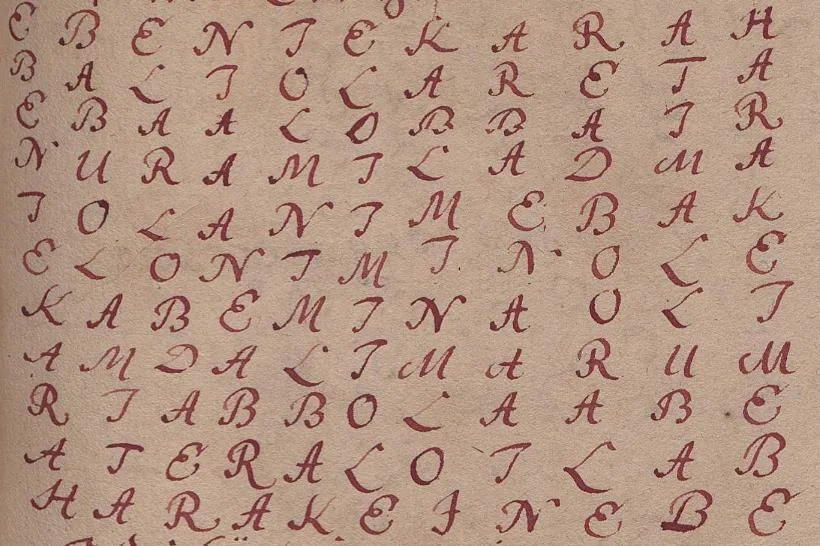 E B E N I E K A R A H
B A L I O L A R E T A
E B A A L O B B A I R
N U R A M I L A D M A
I O L A N I M E B A K
E L O N I M I N O L E
K A B E M I N A O L I
A M D A L I M A R U M
R I A B B O L A A B E
A T E R A L O I L A B
H A R A K E I N E B E